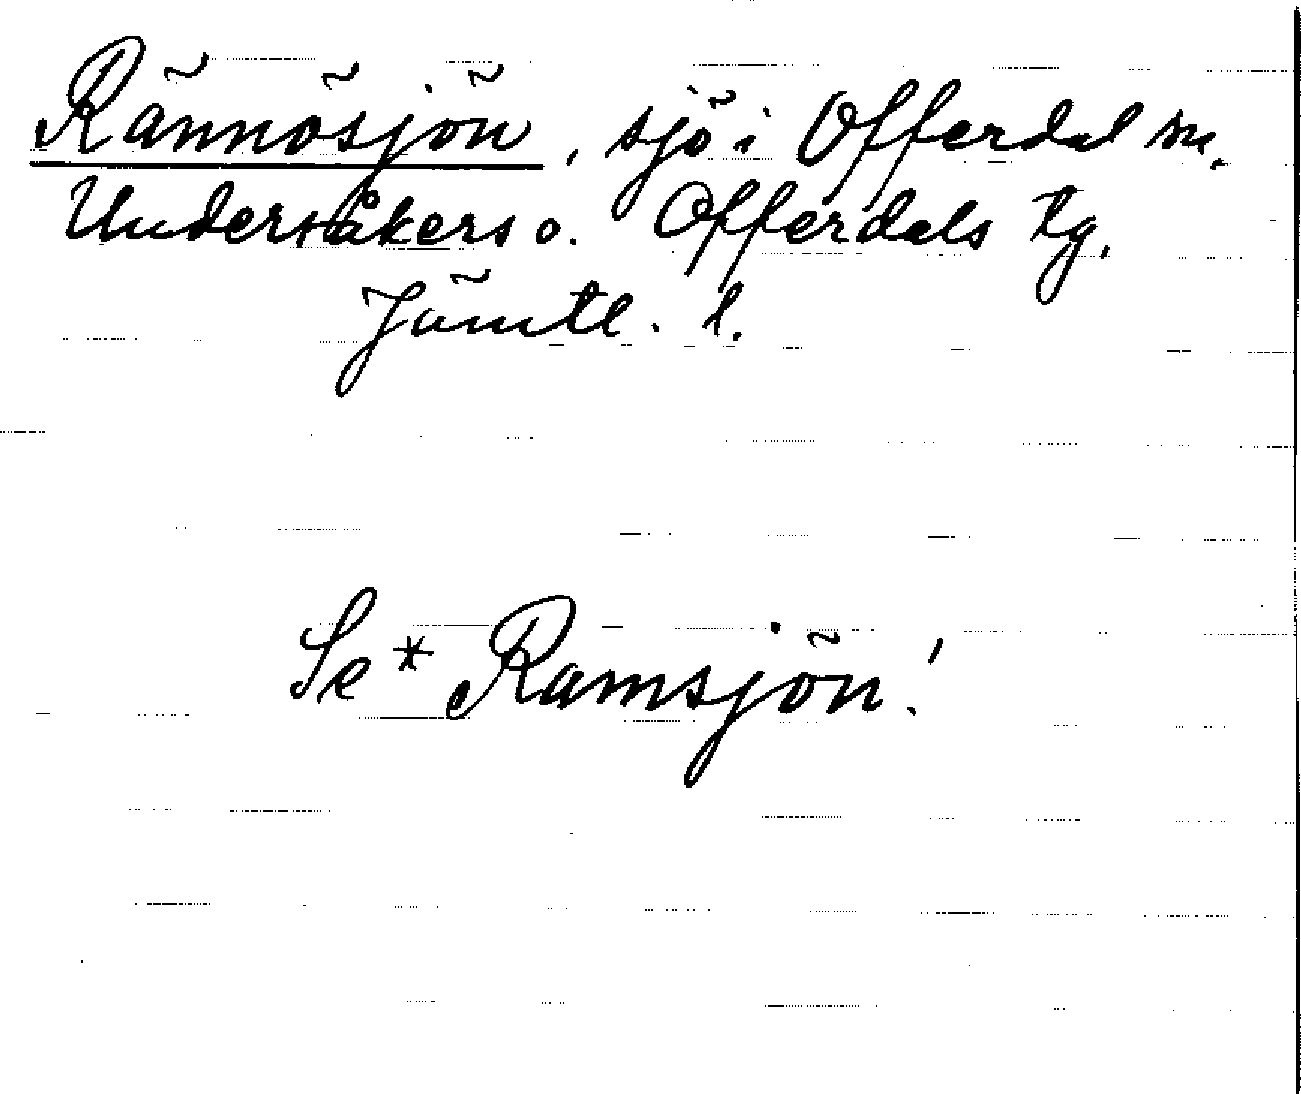 Rännösjön, sjö i Offerdal sn.
Undersåkers o. Offerdals tg.
Jämtl. l.
Se * Ramsjön!